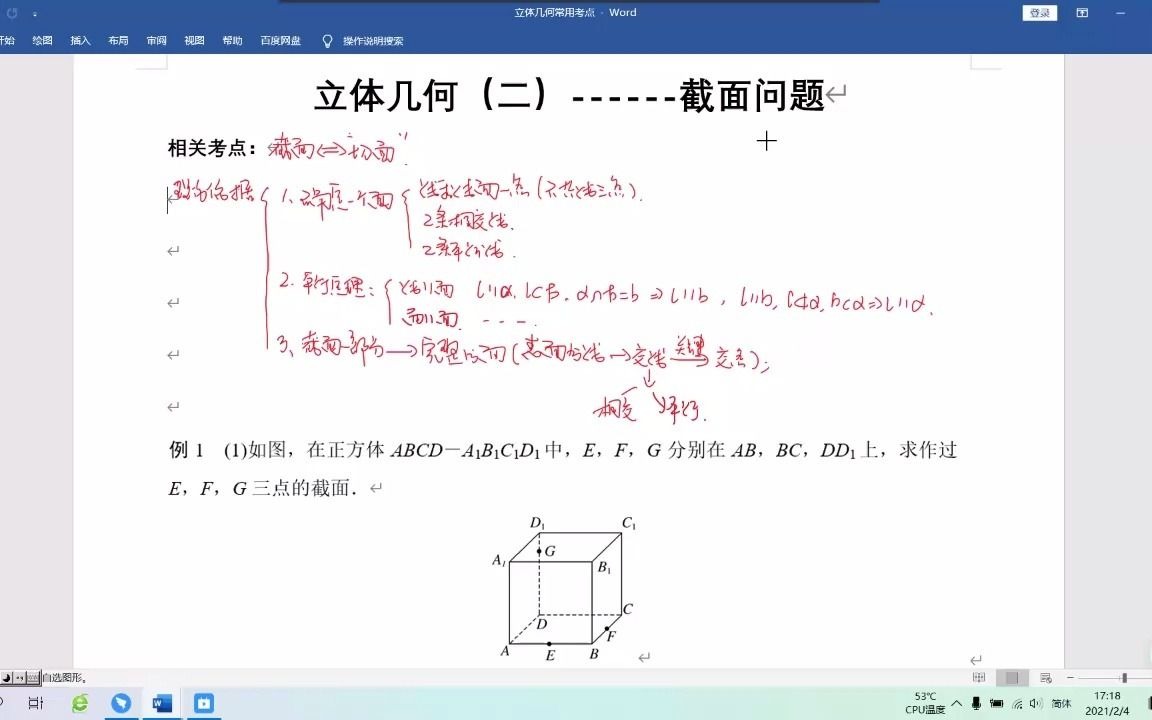 立体几何常用考点 - Word
登录
开始 绘图 插入 布局 审阅 视图 帮助 百度网盘 操作说明搜索
立体几何（二）------截面问题
相关考点：截面⇔"切面"
1、确定一个面 线与线面一点(不共线三点).
2条相交线.
2条平行线.
2. 平行原理: 线∥面 l∥α, l⊂β, α∩β=b ⇒ l∥b, l∥b, l⊄α, b⊂α ⇒ l∥α.
面∥面. - - - .
3、截面一部分→完整截面(表面与线→交线 关键→ 交点);
相交 平行.
例 1 (1)如图，在正方体 ABCD－A₁B₁C₁D₁ 中，E，F，G 分别在 AB，BC，DD₁ 上，求作过
E，F，G 三点的截面．
D₁ C₁
G
A₁ B₁
D C
F
A E B
自选图形。
53℃
CPU温度
简体
17:18
2021/2/4